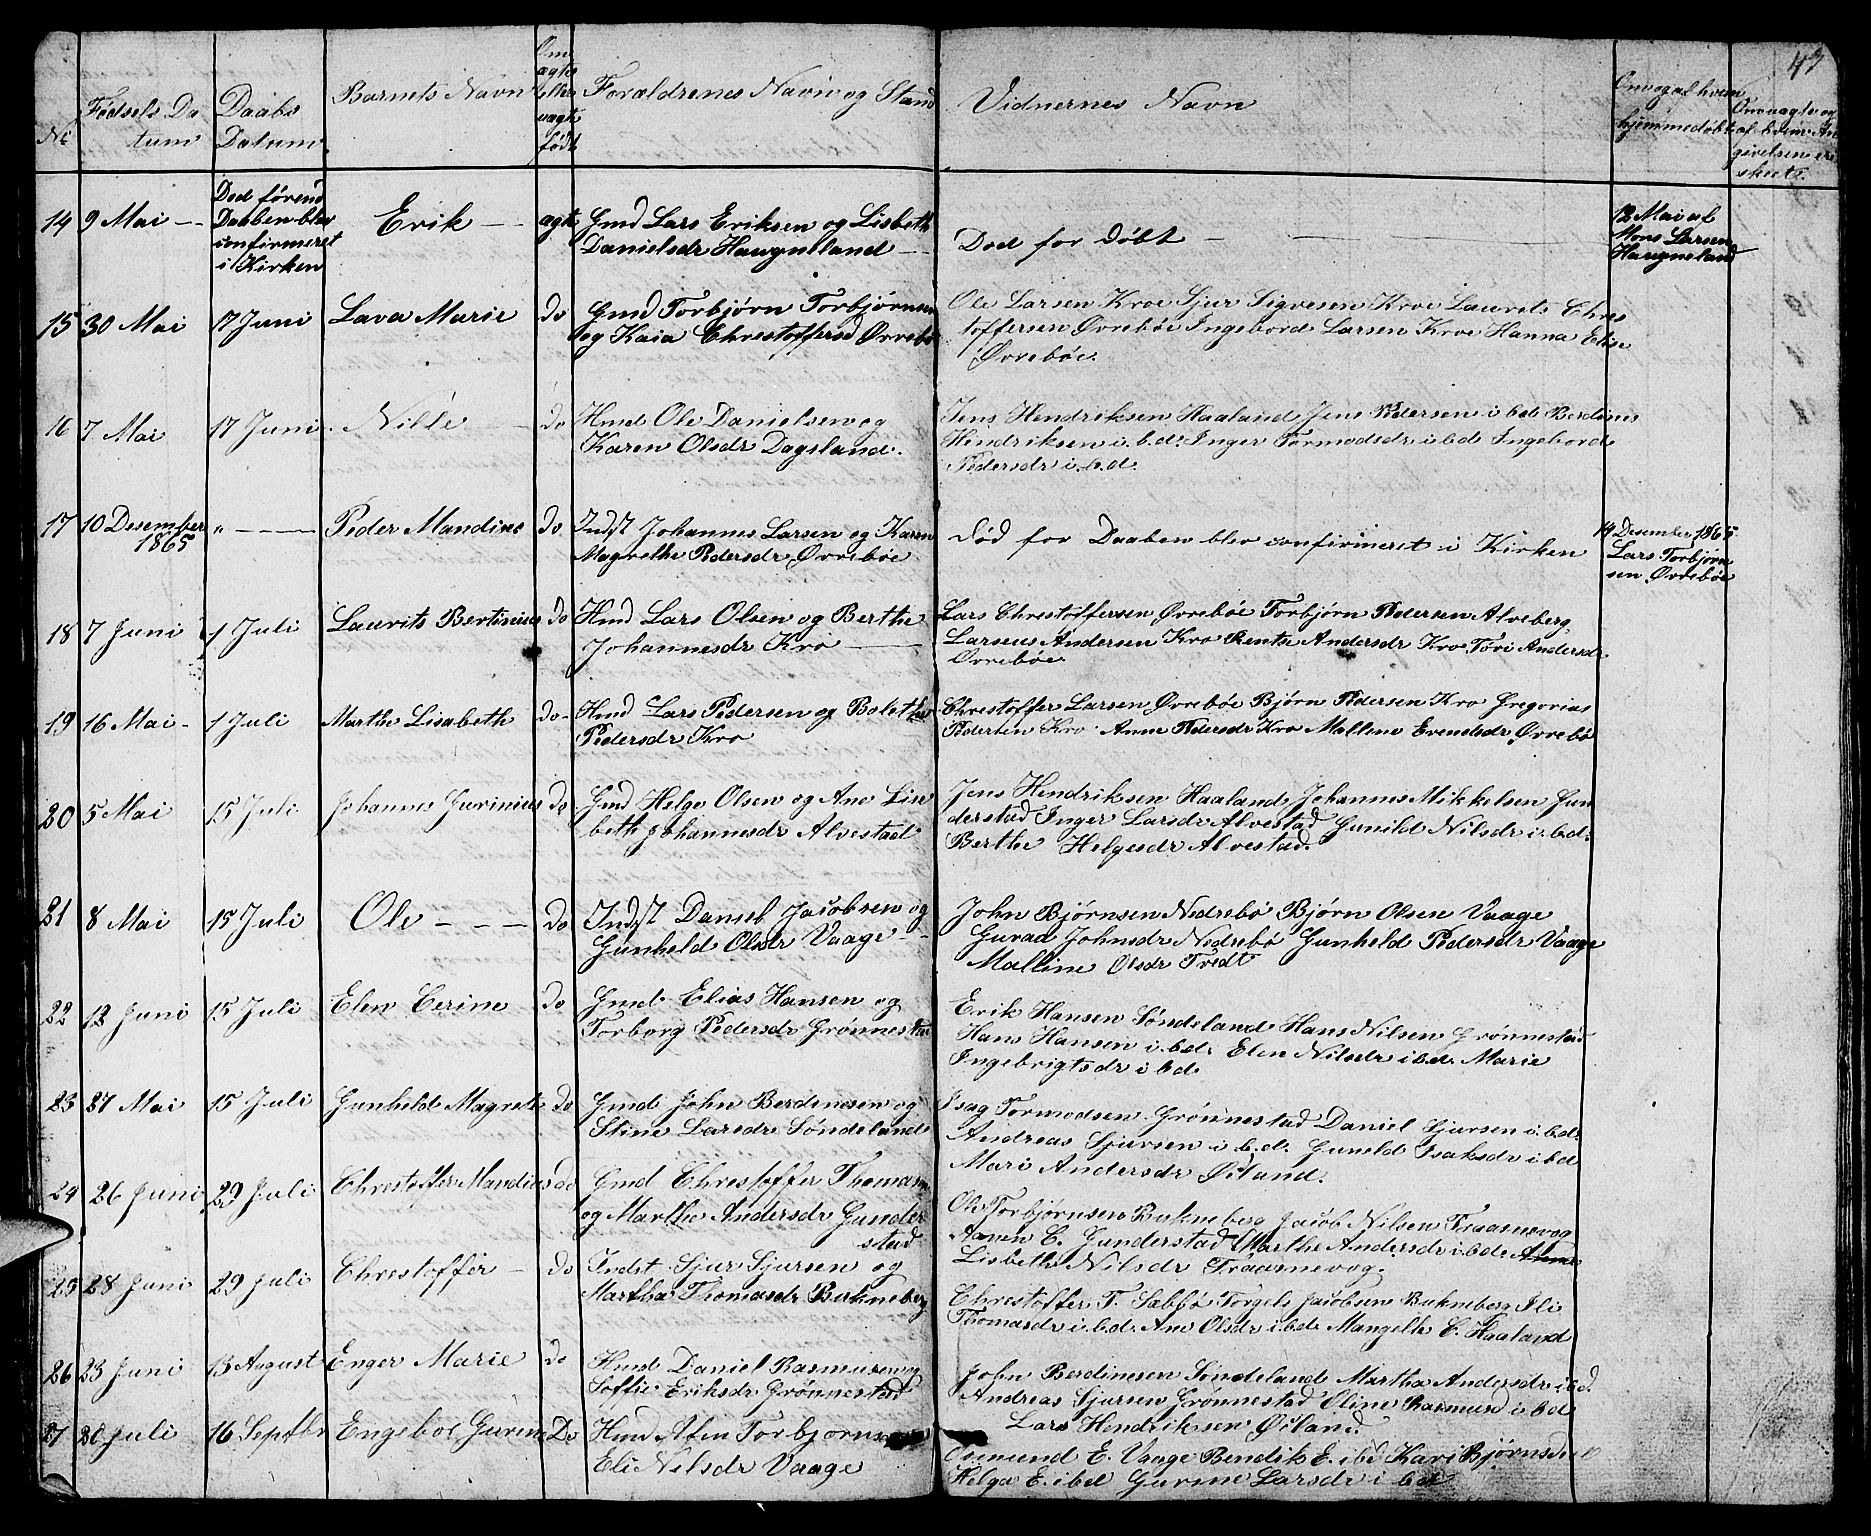 47
No
Fødsels Da
tum
Daabs
Datum
Barnets Navn
Om
ægte
eller
uægte
født
Forældrenes Navn og Stand
Vidnernes Navn
Om og af hvem
hjemmedøbt
Om vagte og
af hvem An
givelsen er
skeet.
14 9 Mai --
Død førend
Daaben blev
confirmeret
i Kirken
Erik --
ægte
Gmd Lars Eriksen og Lisbeth
Danielsdr Haugneland --
Død før døbt -
12 Mai af
Mons Larsen
Haugneland
15 30 Mai
17 Juni
Lava Marie
do
Gmd Torbjørn Torbjørnsen
og Kaia Chrestoffersd Ørrebø
Ole Larsen Kroe Sjur Sigvesen Kroe Laurets Chres
toffersen Ørrebøe Ingebord Larsen Kroe Hanna Elise
Ørrebøe.
16 7 Mai
17 Juni
Nille -
do
Hmd Ole Danielsen og
Karen Olsdr Dagsland.
Jens Hendriksen Haaland Jens Pedersen i bd Berdines
Hendriksen i.b.d. Inger Tormodsdr i bd Ingebord
Pedersdr i.b.d.
17 10 Desember
1865
" ---
Peder Mandine
do
Indst Johannes Larsen og Karen
Magrethe Pedersdr Ørrebøe
død for Daaben blev confirmeret i Kirken
14 Desember 1865
Lars Torbjørn
sen Ørrebøe
18 7 Juni
1 Juli
Laurits Bertinius
do
Hmd Lars Olsen og Berthe
Johannesdr Kro --
Lars Chrestoffersen Ørrebøe Torbjørn Pedersen Alveberg
Larseus Andersen Kro Rentse Andersdr Kroe Tori Andersdr
Ørrebøe
19 16 Mai -
1 Juli
Marthe Lisabeth
do -
Hmd Lars Pedersen og Bolethe
Pedersdr Kro
Chrestoffer Larsen Ørrebøe Bjørn Pedersen Kro Gregorius
Pedersen Kro Anne Pedersdr Kro Malline Evendsdr Ørrebø
20 5 Mai
15 Juli
Johannes Gurinius
do
Gmd Helge Olsen og Ane Lis
beth Johannesdr Alvestad
Jens Hendriksen Haaland Johannes Mikkelsen Gun
derstad Inger Larsdr Alvestad Gunild Nilsdr i.bd.
Berthe Helgesdr Alvestad.
21 8 Mai
15 Juli
Ole - - -
do
Indst Daniel Jacobsen og
Gunheld Olsdr Vaage --
John Bjørnsen Nedrebø Bjørn Olsen Vaage
Guraa Johnsdr Nedrebø Gunheld Pedersdr Vaage
Malline Olsdr Tvedt
22 12 Juni
15 Juli
Elen Cerine
do
Gmd Elias Hansen og
Torborg Pedersdr Grønnestad
Erik Hansen Søndeland Hans Nilsen Grønnestad
Hans Hansen i.bd. Elen Nilsdr i bd. Marie
Ingebrigtsdr i bd
23 27 Mai
15 Juli
Gunheld Magrete
do
Gmd John Berdinesen og
Stine Larsdr Søndeland
Isag Tormodsen Grønnestad Daniel Sjursen i.bd.
Andreas Sjursen i b.d. Gunild Isaksdr i bd
Mari Andersdr Øiland.
24 26 Juni
29 Juli
Chrestoffer Mandius
do
Gmd Chrestoffer Thomasen
og Marthe Andersdr Gunder
stad
Ole Torbjørnsen Bukneberg Jacob Nilsen Traanevog
Aanen C. Gunderstad Marthe Andersdr i.bd.
Lisbeth Nilsdr Traarnevog.
25 28 Juni
29 Juli
Chrestoffer -
do
Indst Sjur Sjursen og
Martha Thomasdr Bukneberg
Chrestoffer T. Sæbbø Torgels Jacobsen Bukneberg Eli
Thomasdr i.b.d. Ane Olsdr i.bd. Mangelle C. Haaland
26 23 Juni
13 August
Enger Marie
do
Hmd Daniel Rasmusen og
Soffie Eriksdr Grønnestad
John Berdinesen Søndeland Martha Andersdr i bd.
Andreas Sjursen Grønnestad Oline Rasmusd i bd
Lars Hendriksen Øiland.
27 20 Juli
16 Septbr
Engeboe Gurine
Do
Hmd Aten Torbjørns
Eli Nilsdr Vaage
Osmund E. Vaage Bendik E. i bd Kari Bjørnsdr
Helga E. i bd Gurine Larsdr i bd